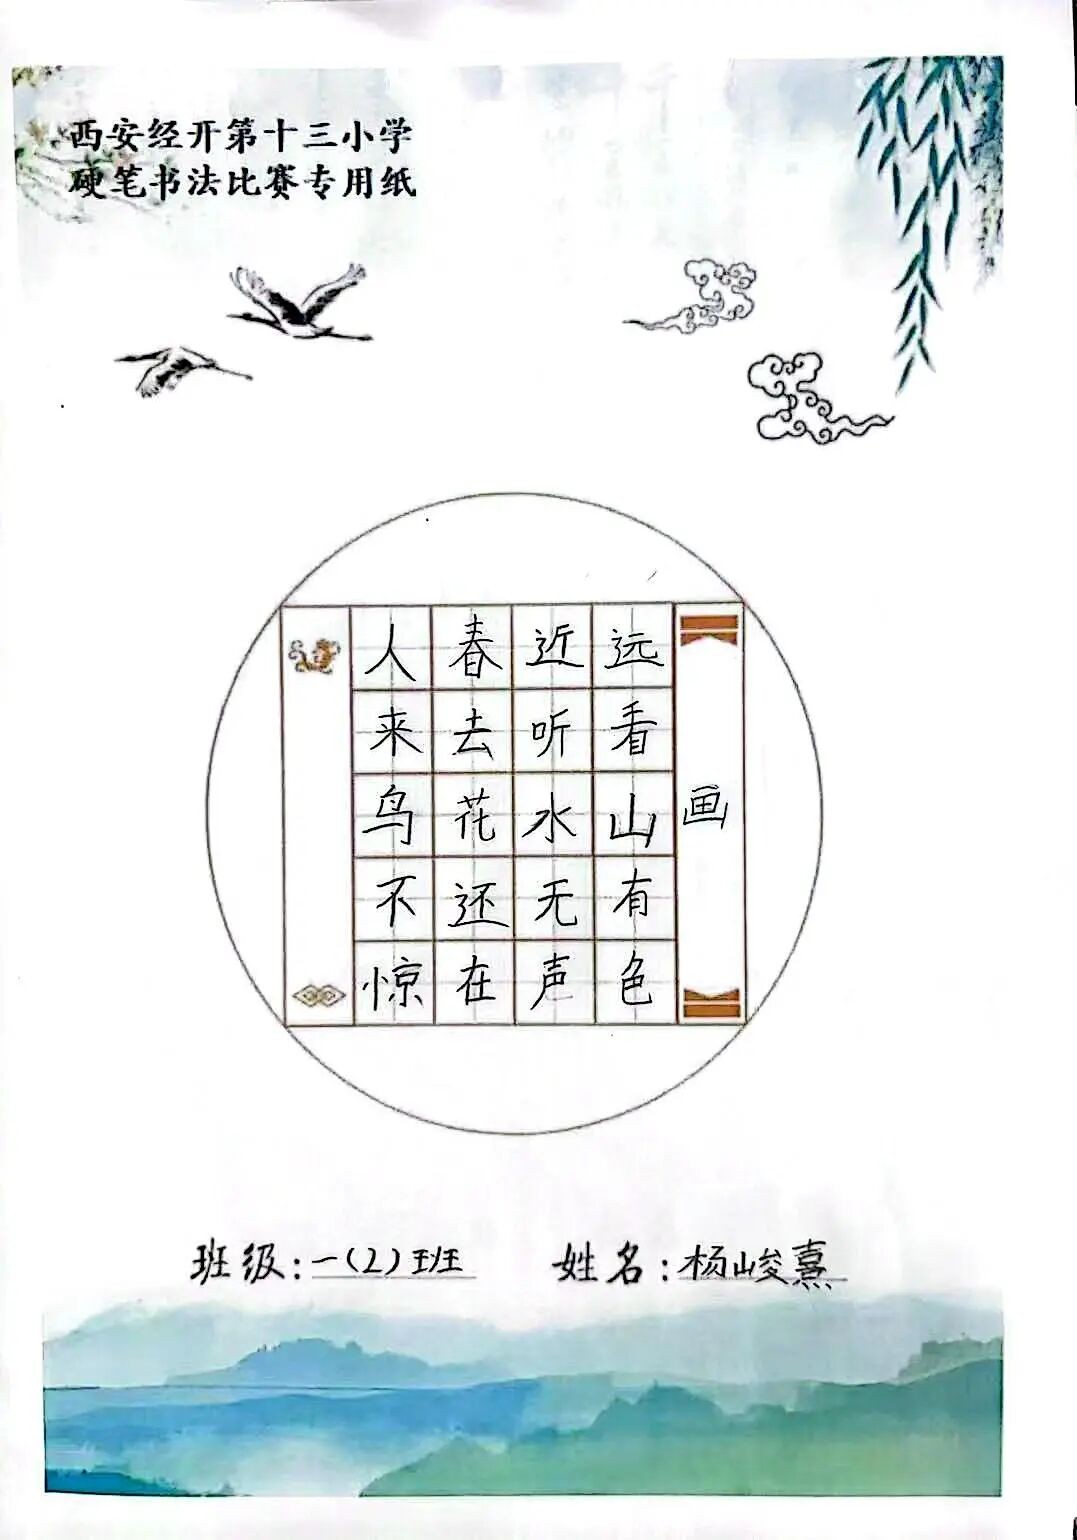 西安经开第十三小学
硬笔书法比赛专用纸
画
远看山有色
近听水无声
春去花还在
人来鸟不惊
班级:一(2)班 姓名:杨峻熹